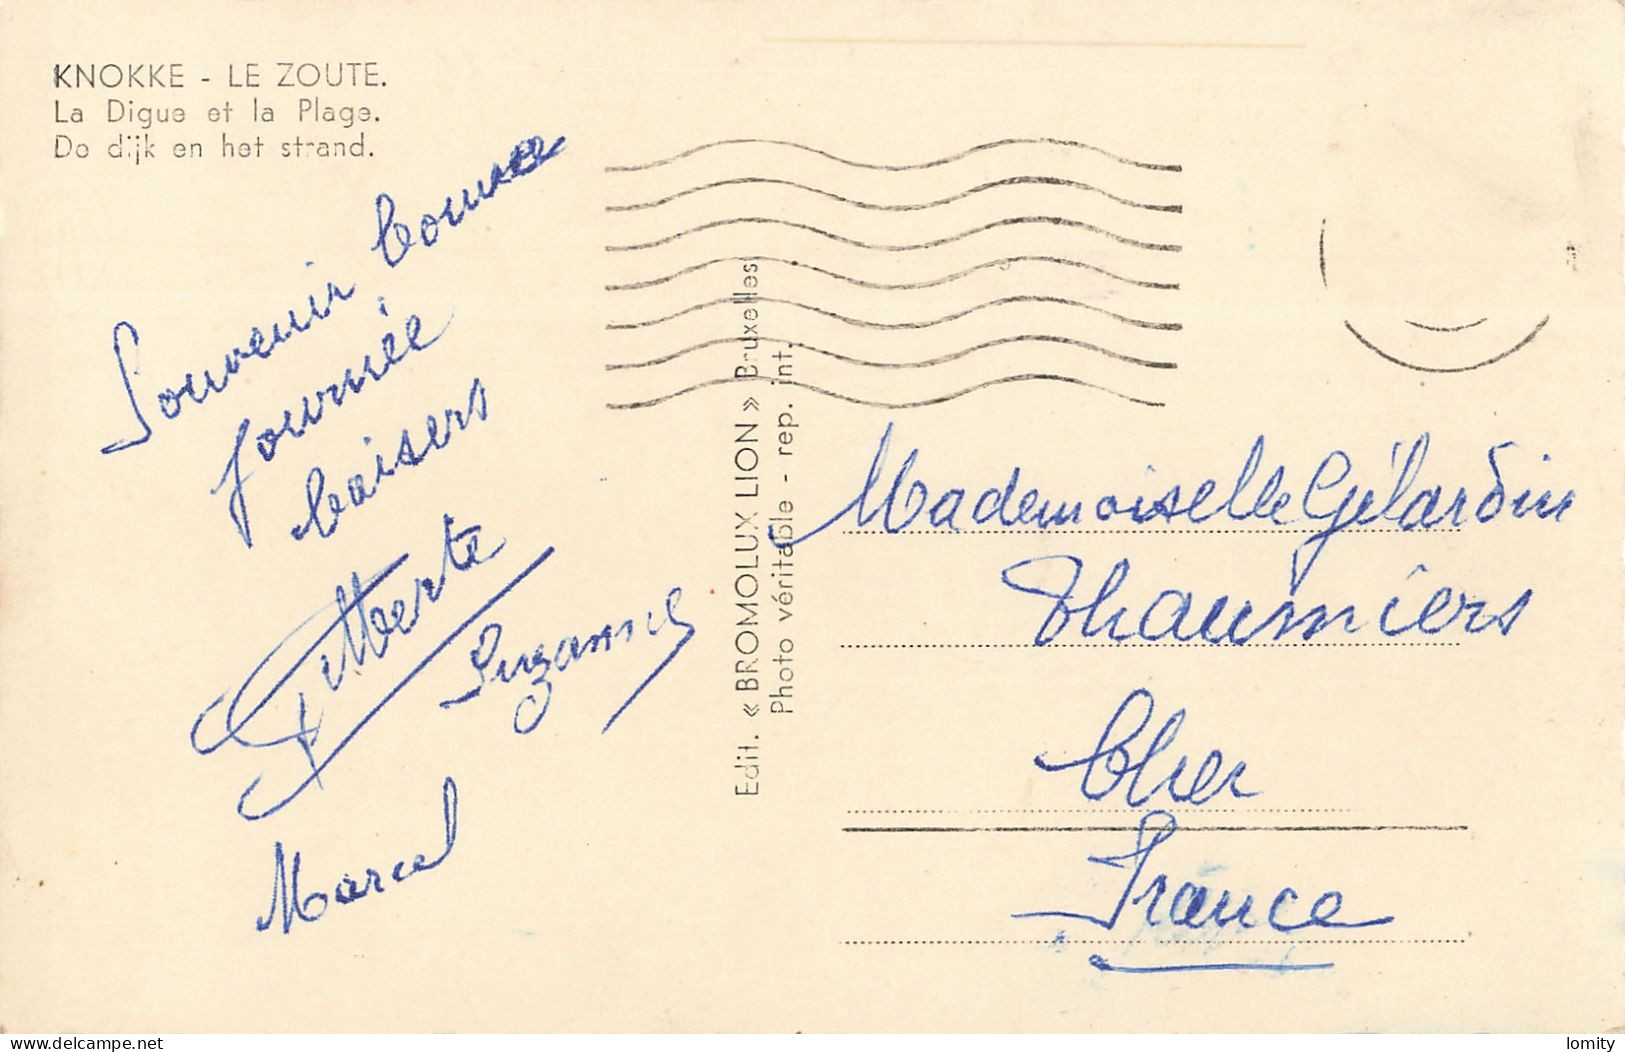 KNOKKE - LE ZOUTE.
La Digue et la Plage.
De dijk en het strand.
Souvenir bonne
journée
baisers
Gilberte
Suzanne
Marcel
Edit. « BROMOLUX LION » Bruxelles
Photo véritable - rep. int.
Mademoiselle Gélardin
Thaumiers
Cher
France
delcampe.net
lomity